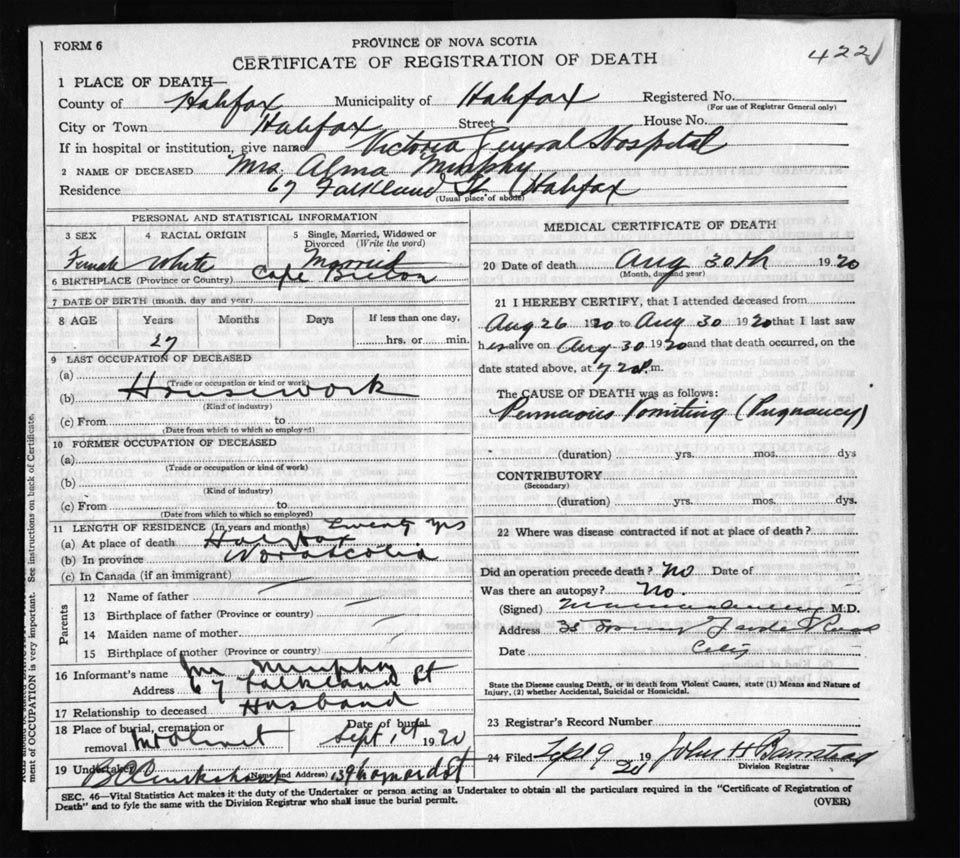 FORM 6
PROVINCE OF NOVA SCOTIA
CERTIFICATE OF REGISTRATION OF DEATH
422
1 PLACE OF DEATH—
County of Halifax Municipality of Halifax Registered No.
(For use of Registrar General only)
City or Town Halifax Street House No.
If in hospital or institution, give name Victoria General Hospital
2 NAME OF DECEASED Mrs. Alma Murphy
Residence 67 Falkland St. Halifax
(Usual place of abode)
PERSONAL AND STATISTICAL INFORMATION
3 SEX 4 RACIAL ORIGIN 5 Single, Married, Widowed or Divorced (Write the word)
Female White Married
6 BIRTHPLACE (Province or Country) Cape Breton
7 DATE OF BIRTH (month, day and year)
8 AGE Years Months Days If less than one day,
27 hrs. or min.
9 LAST OCCUPATION OF DECEASED
(a)
(Trade or occupation or kind or work)
(b) Housework
(Kind of industry)
(c) From to
(Date from which to which so employed)
10 FORMER OCCUPATION OF DECEASED
(a)
(Trade or occupation or kind of work)
(b)
(Kind of industry)
(c) From to
(Date from which to which so employed)
11 LENGTH OF RESIDENCE (In years and months) Twenty yrs
(a) At place of death Halifax
(b) In province Nova Scotia
(c) In Canada (if an immigrant)
Parents
12 Name of father
13 Birthplace of father (Province or country)
14 Maiden name of mother
15 Birthplace of mother (Province or country)
16 Informant's name Murphy
Address 67 Falkland St
17 Relationship to deceased Husband
18 Place of burial, cremation or removal Mt Olivet Date of burial Sept 1st 1920
19 Undertaker (Name and Address)
MEDICAL CERTIFICATE OF DEATH
20 Date of death Aug 30th 1920
(Month, day and year)
21 I HEREBY CERTIFY, that I attended deceased from
Aug 26 1920 to Aug 30 1920 that I last saw
her alive on Aug 30 1920 and that death occurred, on the
date stated above, at m.
The CAUSE OF DEATH was as follows:
Pernicious Vomiting (Pregnancy)
(duration) yrs. mos. dys
CONTRIBUTORY
(Secondary)
(duration) yrs. mos. dys.
22 Where was disease contracted if not at place of death?
Did an operation precede death? No Date of
Was there an autopsy? No.
(Signed) M.D.
Address 35
Date City
State the Disease causing Death, or in death from Violent Causes, state (1) Means and Nature of
Injury, (2) whether Accidental, Suicidal or Homicidal.
23 Registrar's Record Number
24 Filed 9 1920 John H Barnstead
Division Registrar
SEC. 46—Vital Statistics Act makes it the duty of the Undertaker or person acting as Undertaker to obtain all the particulars required in the "Certificate of Registration of
Death" and to fyle the same with the Division Registrar who shall issue the burial permit.
(OVER)
ment of OCCUPATION is very important. See instructions on back of Certificate.